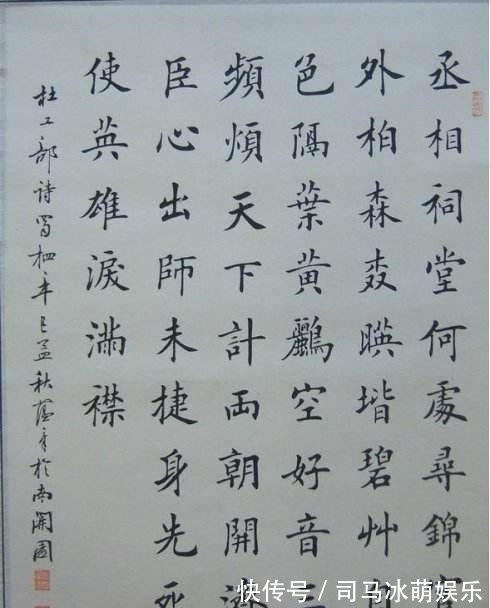 丞相祠堂何處尋錦官
外柏森森暎堦碧艸自
色隔葉黃鸝空好音三
頻煩天下計両朝開濟
臣心出師未捷身先死
使英雄淚滿襟
杜工部詩蜀相辛巳孟秋於南開園
快传号 / 司马冰萌娱乐